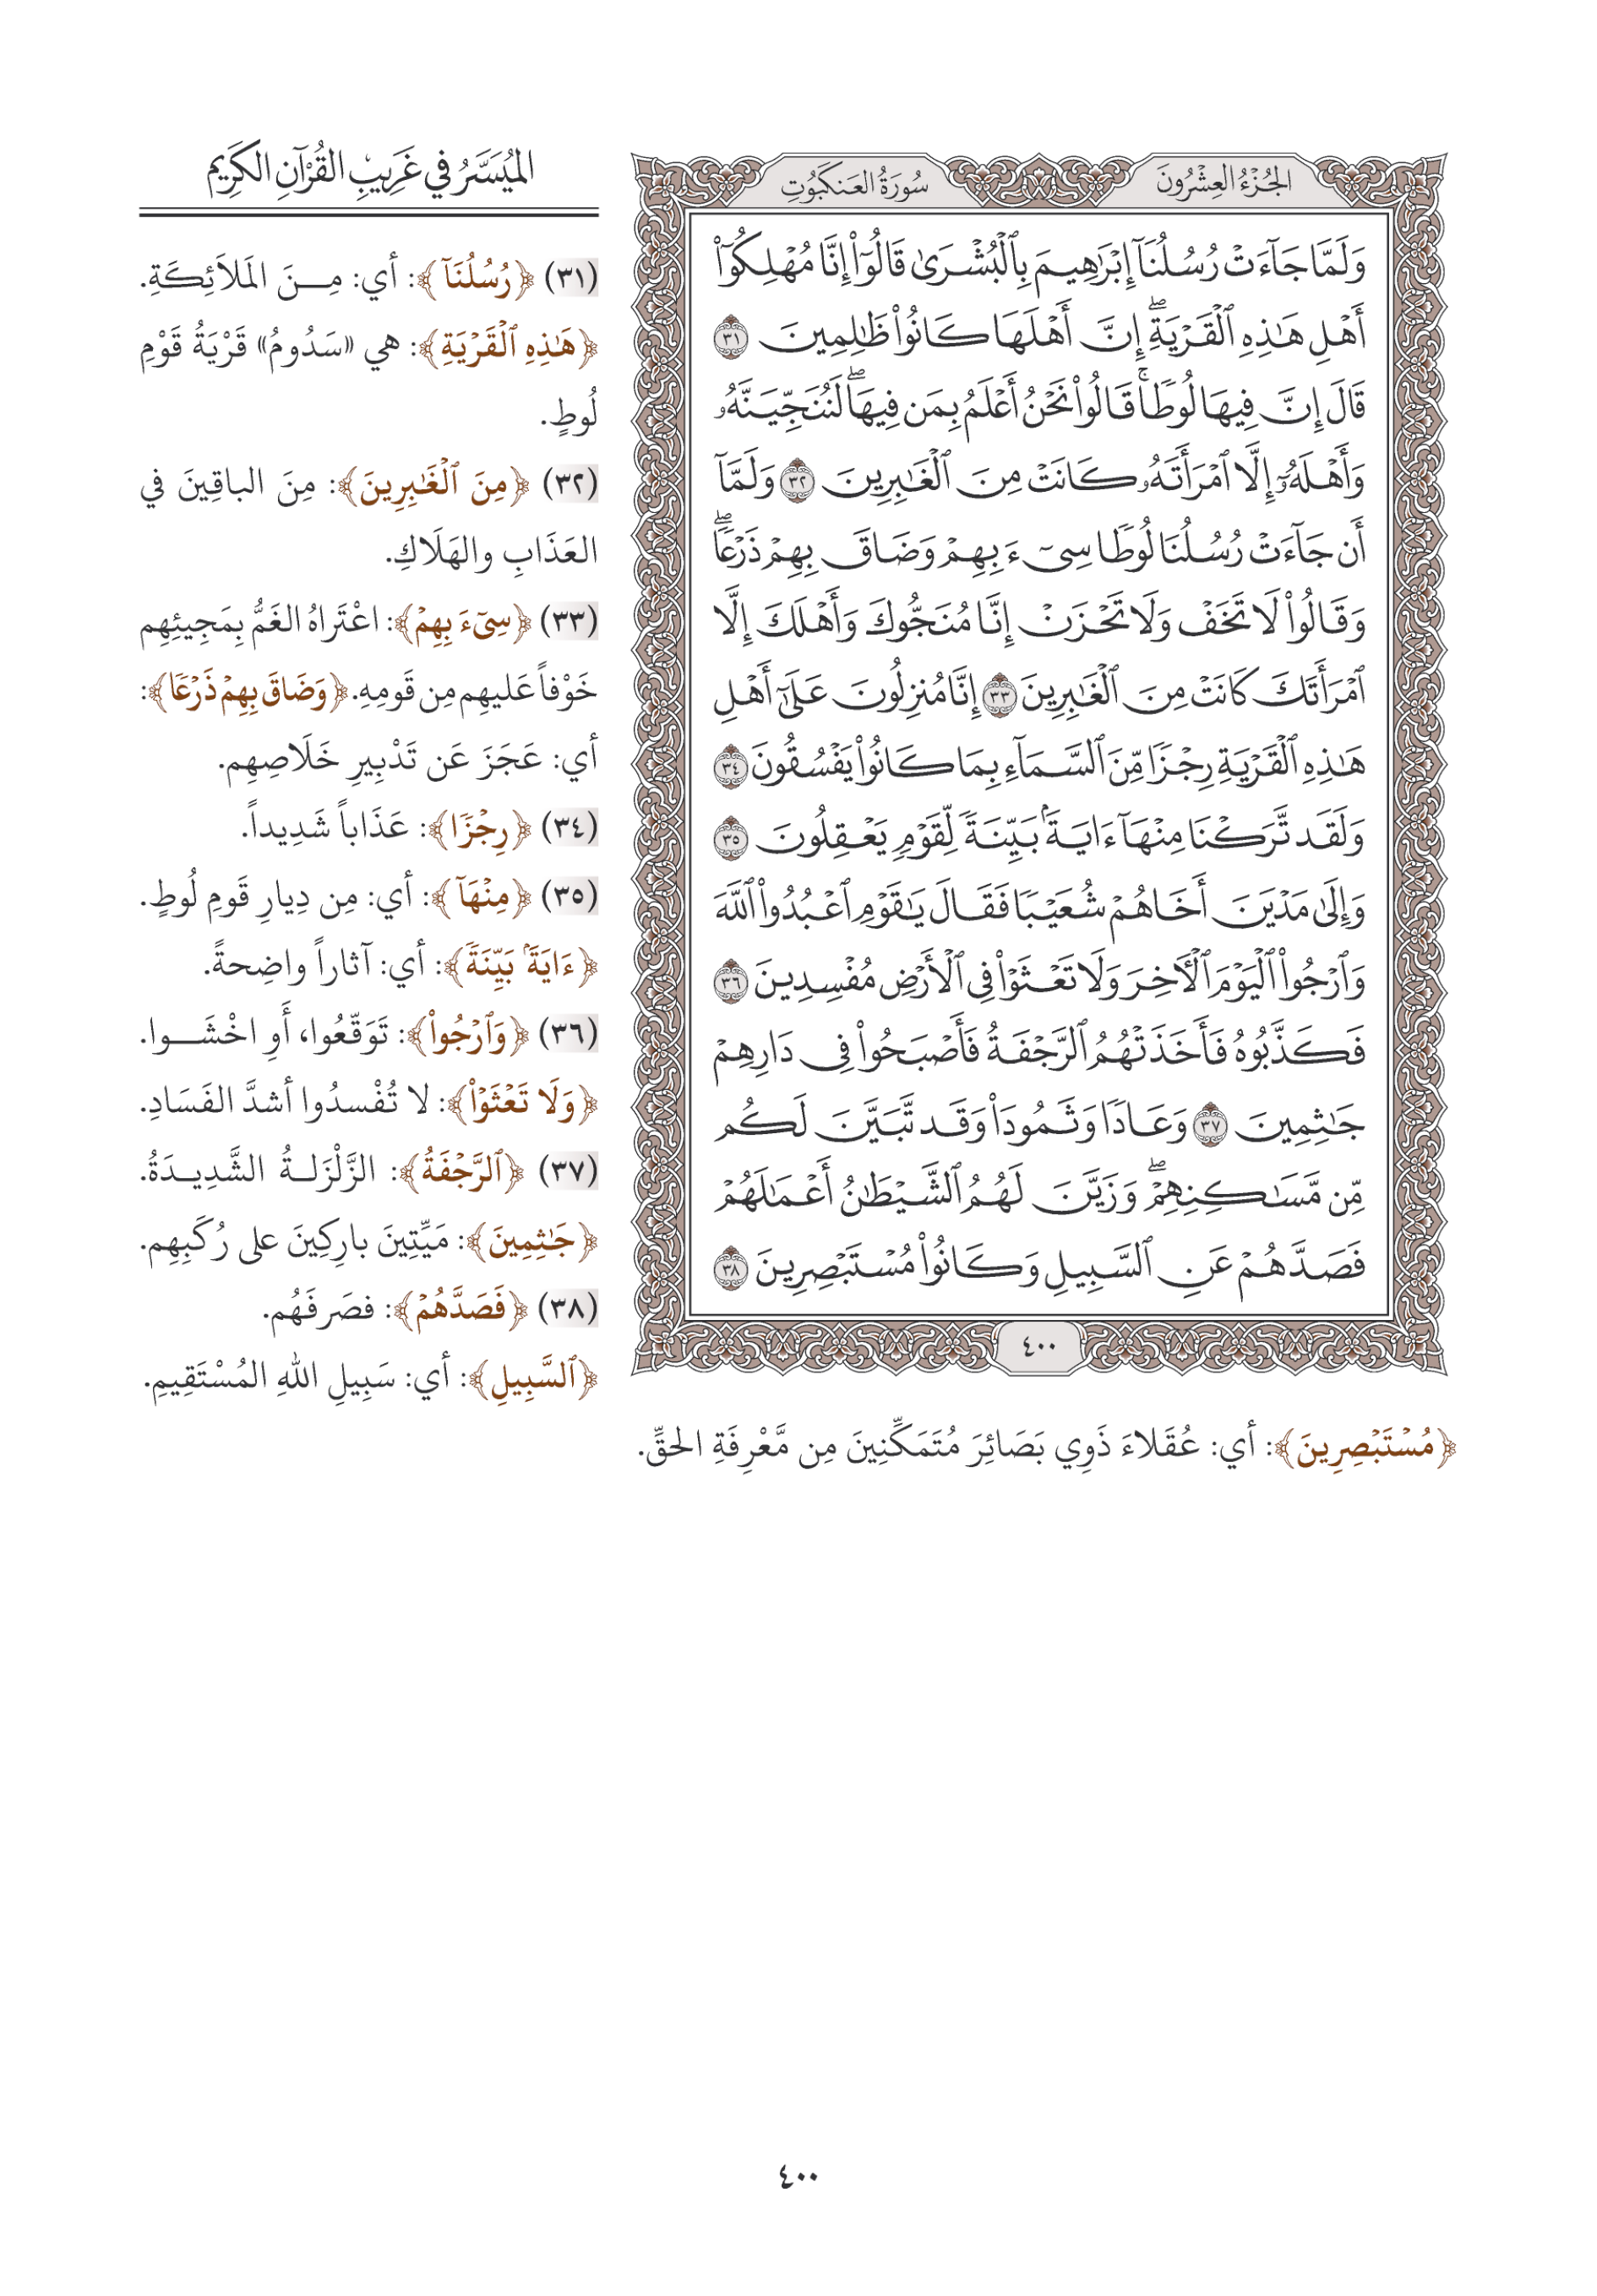 الجُزْءُ العِشْرُونَ
سُورَةُ العَنكَبُوتِ
وَلَمَّا جَآءَتْ رُسُلُنَآ إِبْرَٰهِيمَ بِٱلْبُشْرَىٰ قَالُوٓا۟ إِنَّا مُهْلِكُوٓا۟
أَهْلِ هَٰذِهِ ٱلْقَرْيَةِۖ إِنَّ أَهْلَهَا كَانُوا۟ ظَٰلِمِينَ ٣١
قَالَ إِنَّ فِيهَا لُوطًاۚ قَالُوا۟ نَحْنُ أَعْلَمُ بِمَن فِيهَاۖ لَنُنَجِّيَنَّهُۥ
وَأَهْلَهُۥٓ إِلَّا ٱمْرَأَتَهُۥ كَانَتْ مِنَ ٱلْغَٰبِرِينَ ٣٢ وَلَمَّآ
أَن جَآءَتْ رُسُلُنَا لُوطًا سِىٓءَ بِهِمْ وَضَاقَ بِهِمْ ذَرْعًاۖ
وَقَالُوا۟ لَا تَخَفْ وَلَا تَحْزَنْ إِنَّا مُنَجُّوكَ وَأَهْلَكَ إِلَّا
ٱمْرَأَتَكَ كَانَتْ مِنَ ٱلْغَٰبِرِينَ ٣٣ إِنَّا مُنزِلُونَ عَلَىٰٓ أَهْلِ
هَٰذِهِ ٱلْقَرْيَةِ رِجْزًا مِّنَ ٱلسَّمَآءِ بِمَا كَانُوا۟ يَفْسُقُونَ ٣٤
وَلَقَد تَّرَكْنَا مِنْهَآ ءَايَةًۢ بَيِّنَةً لِّقَوْمٍ يَعْقِلُونَ ٣٥
وَإِلَىٰ مَدْيَنَ أَخَاهُمْ شُعَيْبًا فَقَالَ يَٰقَوْمِ ٱعْبُدُوا۟ ٱللَّهَ
وَٱرْجُوا۟ ٱلْيَوْمَ ٱلْءَاخِرَ وَلَا تَعْثَوْا۟ فِى ٱلْأَرْضِ مُفْسِدِينَ ٣٦
فَكَذَّبُوهُ فَأَخَذَتْهُمُ ٱلرَّجْفَةُ فَأَصْبَحُوا۟ فِى دَارِهِمْ
جَٰثِمِينَ ٣٧ وَعَادًا وَثَمُودَا۟ وَقَد تَّبَيَّنَ لَكُم
مِّن مَّسَٰكِنِهِمْۖ وَزَيَّنَ لَهُمُ ٱلشَّيْطَٰنُ أَعْمَٰلَهُمْ
فَصَدَّهُمْ عَنِ ٱلسَّبِيلِ وَكَانُوا۟ مُسْتَبْصِرِينَ ٣٨
٤٠٠
المُيَسَّرُ في غَرِيبِ القُرْآنِ الكَرِيمِ
(٣١) ﴿رُسُلُنَآ﴾: أي: مِنَ المَلاَئِكَةِ.
﴿هَٰذِهِ ٱلْقَرْيَةِ﴾: هي «سَدُومُ» قَرْيَةُ قَوْمِ
لُوطٍ.
(٣٢) ﴿مِنَ ٱلْغَٰبِرِينَ﴾: مِنَ الباقِينَ في
العَذَابِ والهَلَاكِ.
(٣٣) ﴿سِىٓءَ بِهِمْ﴾: اعْتَراهُ الغَمُّ بِمَجِيئِهِم
خَوْفاً عَليهِم مِن قَومِهِ. ﴿وَضَاقَ بِهِمْ ذَرْعًا﴾:
أي: عَجَزَ عَن تَدْبِيرِ خَلَاصِهِم.
(٣٤) ﴿رِجْزًا﴾: عَذَاباً شَدِيداً.
(٣٥) ﴿مِنْهَآ﴾: أي: مِن دِيارِ قَومِ لُوطٍ.
﴿ءَايَةًۢ بَيِّنَةً﴾: أي: آثاراً واضِحةً.
(٣٦) ﴿وَٱرْجُوا۟﴾: تَوَقَّعُوا، أَوِ اخْشَوا.
﴿وَلَا تَعْثَوْا۟﴾: لا تُفْسدُوا أشدَّ الفَسَادِ.
(٣٧) ﴿ٱلرَّجْفَةُ﴾: الزَّلْزَلةُ الشَّدِيدَةُ.
﴿جَٰثِمِينَ﴾: مَيِّتِينَ بارِكِينَ على رُكَبِهِم.
(٣٨) ﴿فَصَدَّهُمْ﴾: فصَرفَهُم.
﴿ٱلسَّبِيلِ﴾: أي: سَبِيلِ اللهِ المُسْتَقِيمِ.
﴿مُسْتَبْصِرِينَ﴾: أي: عُقَلاءَ ذَوِي بَصَائِرَ مُتَمَكِّنِينَ مِن مَّعْرِفَةِ الحقِّ.
٤٠٠